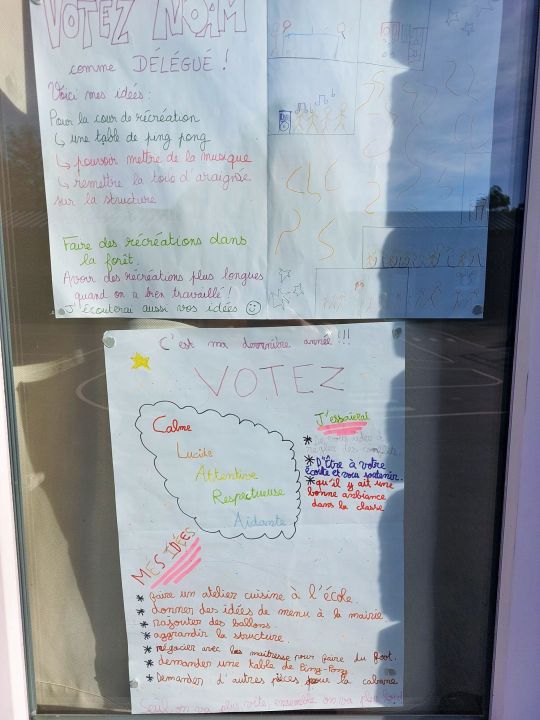 VOTEZ NOAM
comme DÉLÉGUÉ !
Voici mes idées :
Pour la cour de récréation
↳ une table de ping pong
↳ pouvoir mettre de la musique
↳ remettre la toile d'araignée
sur la structure
Faire des récréations dans
la forêt
Avoir des récréations plus longues
quand on a bien travaillé !
J'écouterai aussi vos idées ☺
C'est ma dernière année !!!
VOTEZ
Calme
Lucide
Attentive
Respectueuse
Aidante
J'essaierai
* D'Être à votre
écoute et vous soutenir.
* qu'il y ait une
bonne ambiance
dans la classe
MES IDÉES
* faire un atelier cuisine à l'école.
* donner des idées de menu à la mairie
* rajouter des ballons.
* aggrandir la structure.
* négocier avec les maitresse pour faire du foot.
* demander une table de Ping-Pong
* Demander d'autres pièces pour la cabane
Seul on va plus vite ensemble on va plus loin